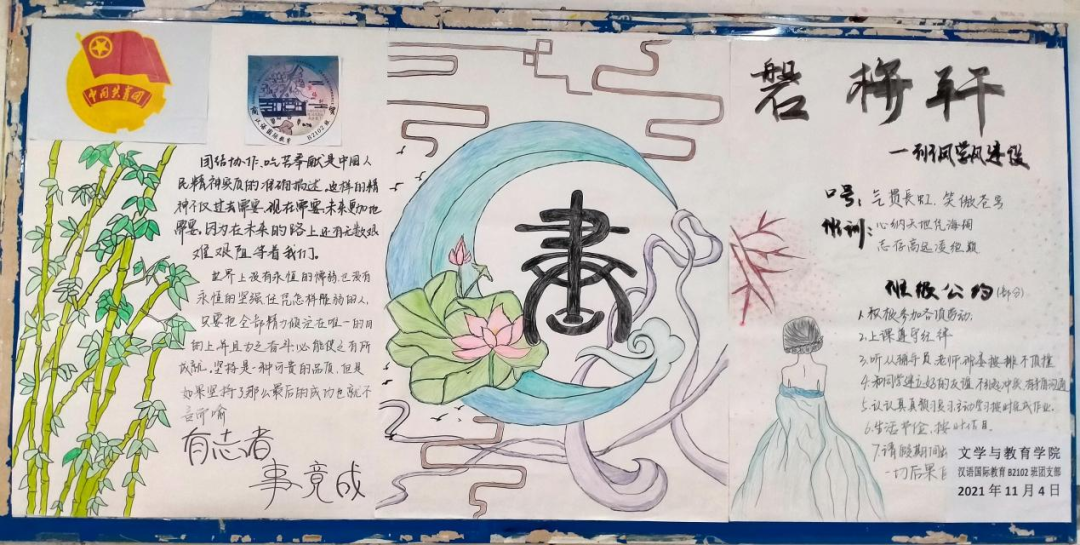 中国共青团
汉语国际教育 B2102班
团结协作、吃苦奉献是中国人
民精神实质的准确描述。这样的精
神不仅过去需要、现在需要、未来更加地
需要，因为在未来的路上还有无数艰
难艰阻等着我们。
世界上没有永恒的懦弱，也没有
永恒的坚强，任凭怎样懦弱的人，
只要把全部精力倾注在唯一的目
的上，并且为之奋斗，必能使之有所
成就。坚持是一种可贵的品质，但是
如果坚持了，那么最后的成功也就不
言而喻
有志者
事竟成
書
磐梅轩
—班风学风建设
口号：气贯长虹、笑傲苍穹
班训：心纳天地凭海阔
志存高远凌绝巅
班级公约(部分)
1.积极参加各项活动.
2.上课遵守纪律
3.听从辅导员、老师和委安排不顶撞
4.和同学建立好的友谊
5.认认真真预习复习主动学习按时完成作业.
6.生活节俭、按时作息.
7.请假期间
一切后果自
文学与教育学院
汉语国际教育 B2102 班团支部
2021 年 11 月 4 日